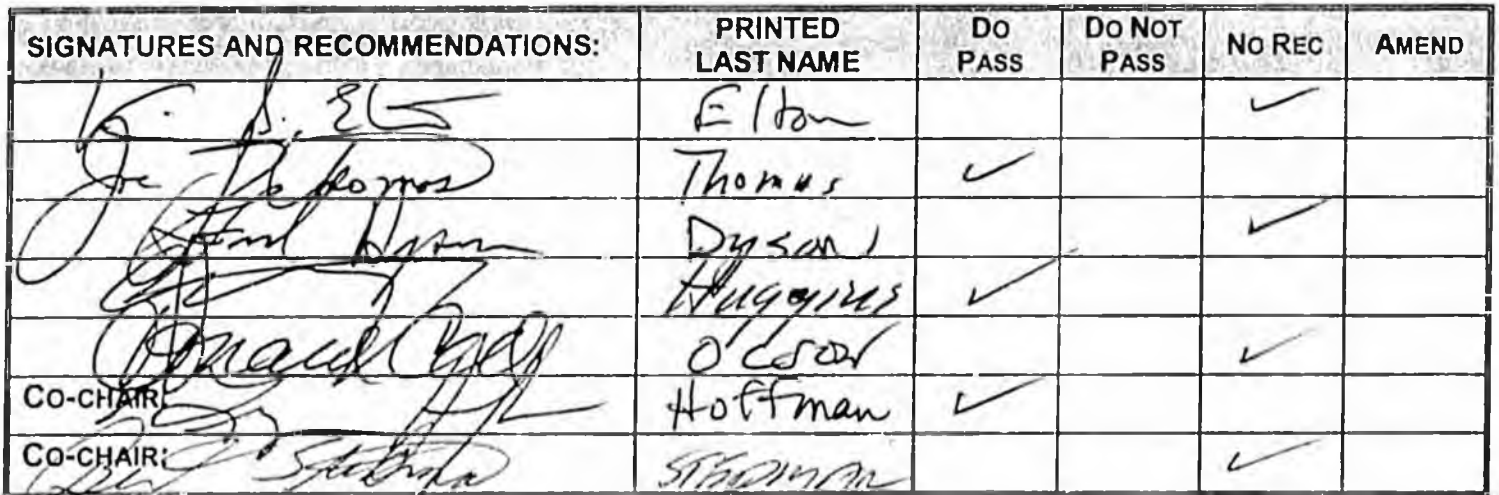 SIGNATURES AND RECOMMENDATIONS: PRINTED LAST NAME DO PASS DO NOT PASS NO REC AMEND
K. S. Elton ✓
Joe Thomas Thomas ✓
Fred Dyson Dyson ✓
Huggins ✓
Donald Olson Olson ✓
CO-CHAIR: Hoffman ✓
CO-CHAIR: Stedman ✓